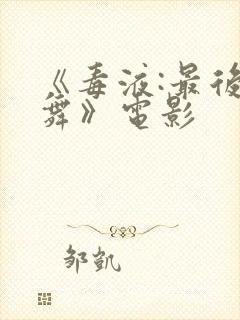 《毒液:最後
舞》電影
邹凯